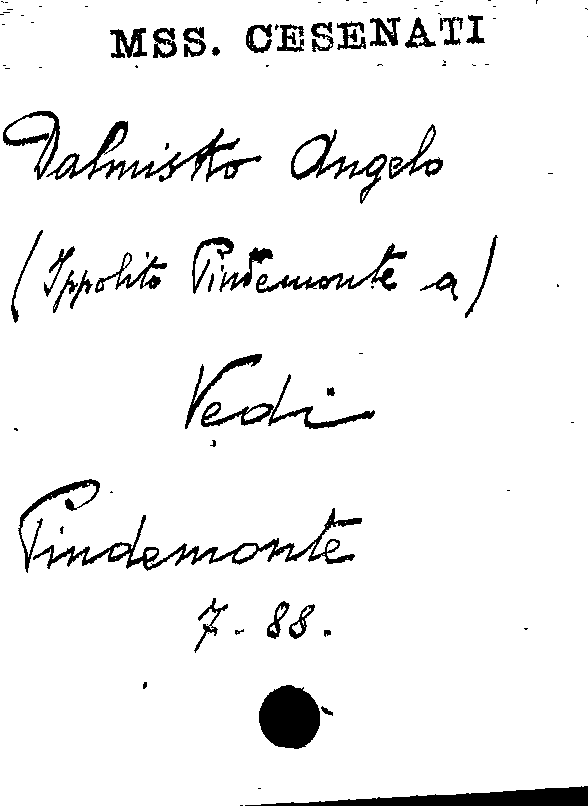 MSS. CESENATI
Dalmistro Angelo
(Ippolito Pindemonte a)
Vedi
Pindemonte
7-88.